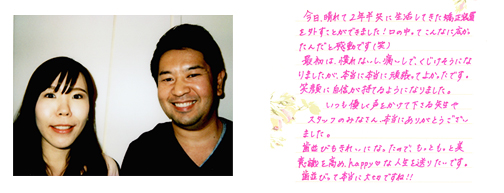 今日、晴れて2年半共に生活してきた矯正装置
を外すことができました！口の中ってこんなに広かっ
たんだと感動です(笑)
最初は、慣れないし、痛いしで、くじけそうにな
りましたが、本当に本当に頑張ってよかったです。
笑顔に自信が持てるようになりました。
いつも優しく声をかけて下さる先生や
スタッフのみなさん、本当にありがとうござい
ました。
歯並びもきれいになったので、もっともっと美
意識を高め、happyな人生を送りたいです。
歯並びって本当に大切ですね!!